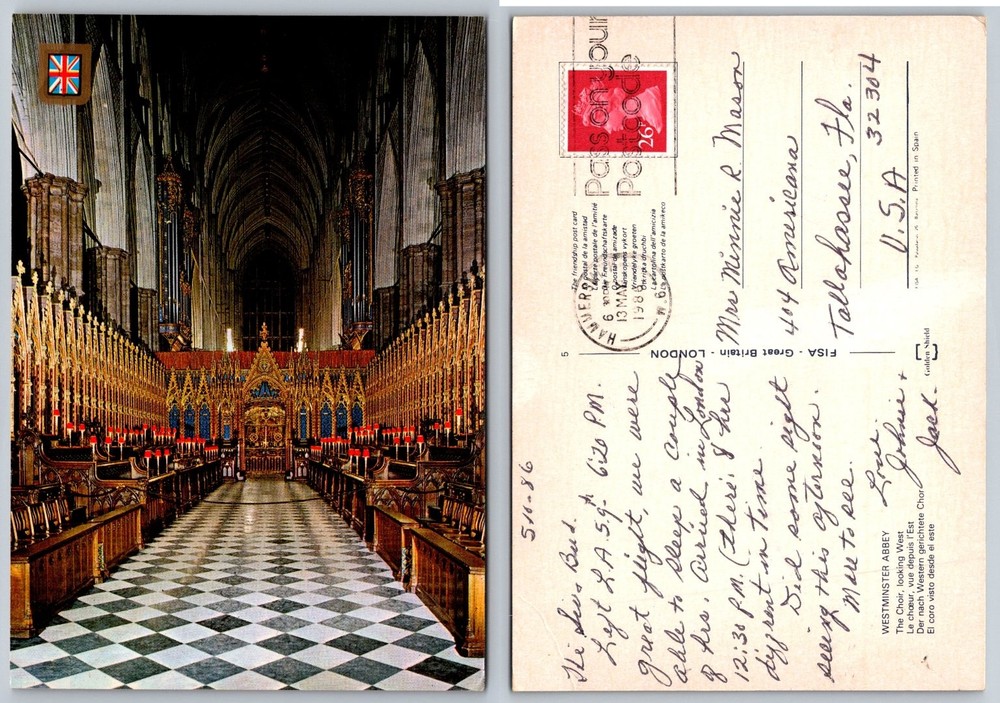 5-10-86
Hi Sis Bud.
Left L.A. 5-9th 6:20 P.M.
great flight, we were
able to sleep a couple
of hrs. arrived in London
12:30 P.M. (theirs 8 hr
different in time.
Did some sight
seeing this afternoon.
More to see.
Love.
Johnie +
Jack.
WESTMINSTER ABBEY
The Choir, looking West
Le chœur, vue depuis l'Est
Der nach Western gerichtete Chor
El coro visto desde el este
5
FISA - Great Britain - LONDON
Golden Shield
Pass on your
Postcode
26P
HAMMERS
6
13 MAY
1986
The friendship post card
postal de la amistad
postale de l'amitié
Freundschaftskarte
postal de amizade
vykort
Vriendelijke groeten
druchbi
Cartolina dell'amicizia
postkarto de la amikeco
Mrs Minnie R. Mason
404 Americana
Tallahassee, Fla.
U.S.A 32304
Printed in Spain